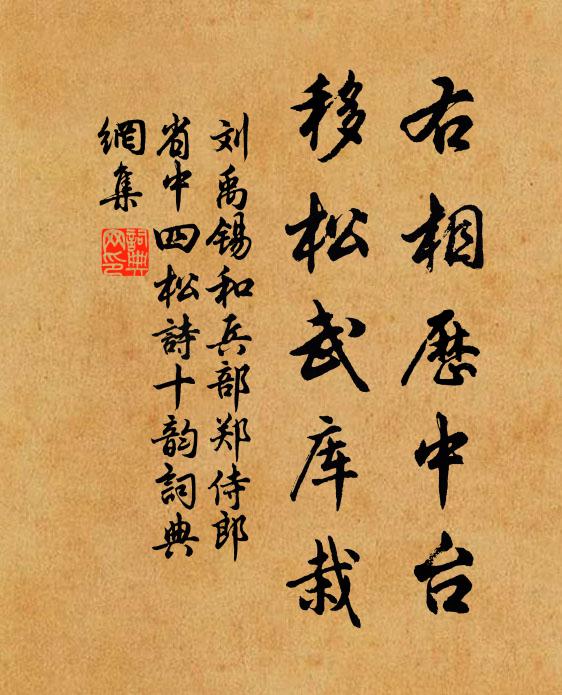 右相歷中台
移松武库栽
刘禹锡和兵部郑侍郎
省中四松詩十韵詞典
網集
詞典
网印